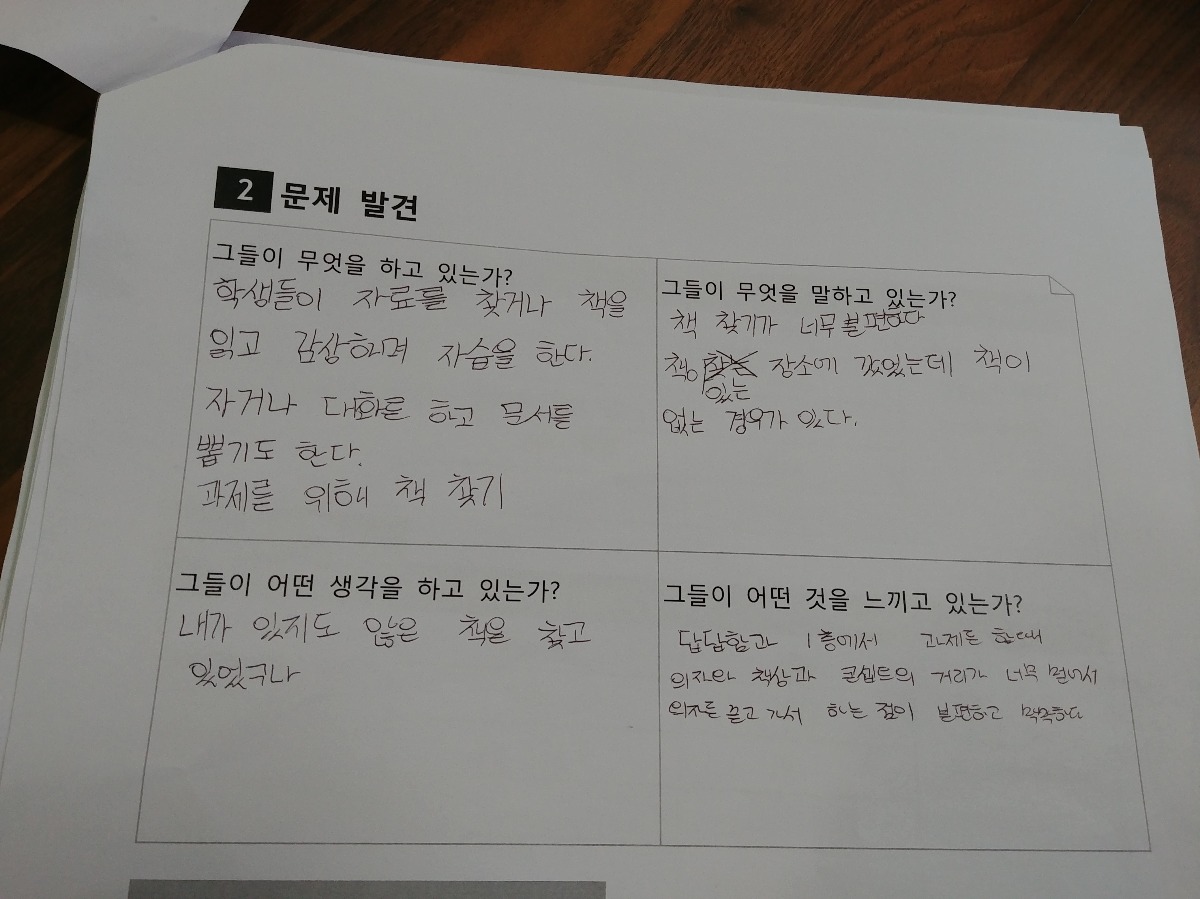 2 문제 발견
그들이 무엇을 하고 있는가?
학생들이 자료를 찾거나 책을
읽고 감상하며 자습을 한다.
자거나 대화를 하고 문서를
뽑기도 한다.
과제를 위해 책 찾기
그들이 무엇을 말하고 있는가?
책 찾기가 너무 불편하다
책이 있는 장소에 갔었는데 책이
없는 경우가 있다.
그들이 어떤 생각을 하고 있는가?
내가 있지도 않은 책을 찾고
있었구나
그들이 어떤 것을 느끼고 있는가?
답답함과 1층에서 과제를 할때
의자와 책상과 콘셉트의 거리가 너무 멀어서
의자를 끌고 가서 하는 점이 불편하고